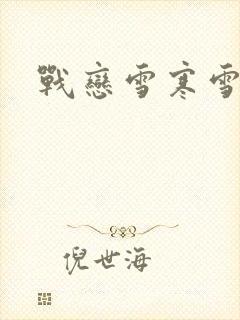 戰戀雪寒雪
倪世海